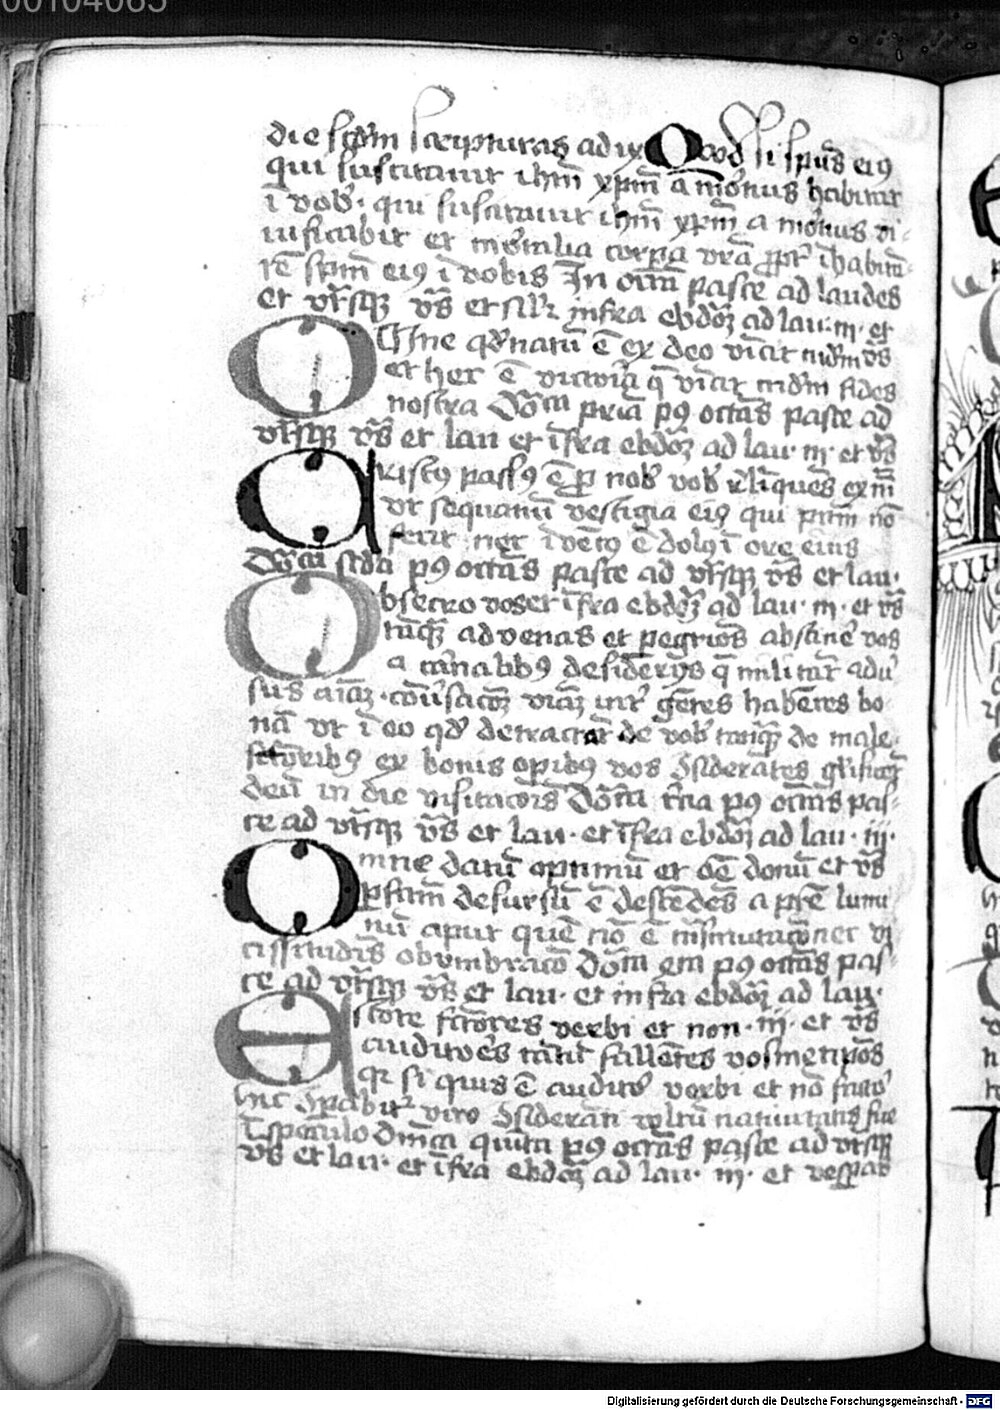 00104065
die scdm scripturas ad ix Quod si spus eius
qui suscitauit ihm xpm a mortuis habitat
i vob. qui suscitauit ihm xpm a mortuis vi
uificabit et mortalia corpa vra ppt ihabita
te spm eius i vobis In oim pasce ad laudes
et vtrsqp vs et silr infra ebdoz ad lau. iii. et
Omne qd natu e ex deo vicit mudm vs
et hec e victoria q vicit mudm fides
nostra Dom pria p9 octas pasce ad
vtrsqp vs et lau et ifra ebdoz ad lau. iii. et vs
Cristus passus e p nob vob reliques exm
vt sequami vestigia eius qui pccm no
fecit nec ivetus e dolus i ore eius
Dom scda p9 octas pasce ad vtrsqp vs et lau.
Obsecro vos et ifra ebdoz ad lau. iii. et vs
tamqz aduenas et pegrios abstine vos
a carnalibus desiderijs q militat adu
sus aiaz. couersacoz viaz intr getes habetes bo
na vt i eo qd detractat de vob tamqz de male
factoribus ex bonis opibus vos 9siderates glificet
deu in die visitacois Doca tcia p9 octas pas
ce ad vtrsqp vs et lau. et ifra ebdoz ad lau. iii.
Omne datu optimu et oe donu et vs
pfcm desursu e descedes a pre lumi
nu aput que no e trasmutaco nec vi
cissitudis obumbraco Dom qrta p9 octas pas
ce ad vtrsqp vs et lau. et infra ebdoz ad lau.
Estote fctores verbi et non. iii. et vs
auditores tatu falletes vosmetipos
qr si quis e auditor verbi et no factor
hic 9pabitr viro 9sideranti vultu natiuitatis sue
i speculo Dnica quinta p9 octas pasce ad vtrsqp
vs et lau. et ifra ebdoz ad lau. iii. et vesperas
Digitalisierung gefördert durch die Deutsche Forschungsgemeinschaft - DFG